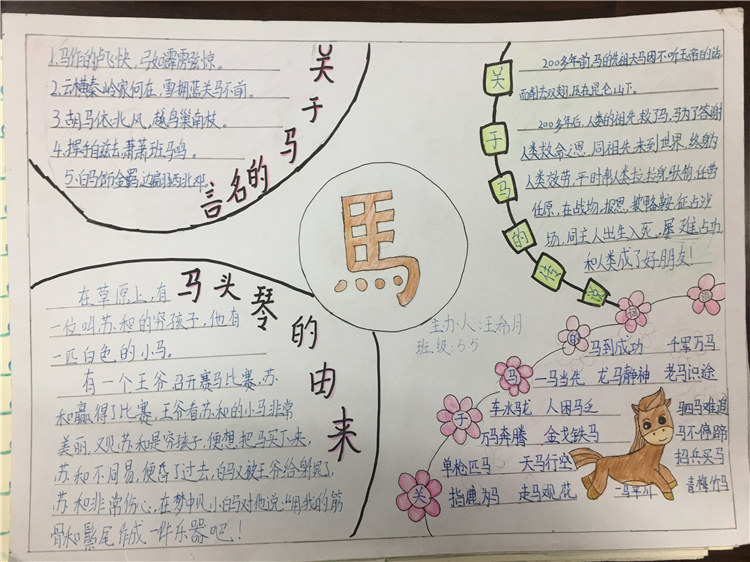 关于马的名言
1.马作的卢飞快，弓如霹雳弦惊。
2.云横秦岭家何在，雪拥蓝关马不前。
3.胡马依北风，越鸟巢南枝。
4.挥手自兹去萧萧班马鸣。
5.白马饰金羁，连翩西北驰
馬
主办人:汪希月
班级:55
关于马的传说
200多年前,马的先祖天马因不听玉帝的话
而削去双翅,压在昆仑山下。
200多年后,人类的祖先救了马,马为了答谢
人类救命之恩,同祖先来到世界,终身为
人类效劳,平时帮人类拉
任原,在战场,报恩,披鞍
场,同主人出生入死,屡
和人类成了好朋友!
马头琴的由来
在草原上,有
一位叫苏和的穷孩子,他有
一匹白色的小马。
有一个王爷召开赛马比赛,苏
和赢得了比赛,王爷看苏和的小马非常
美丽,又见苏和是穷孩子,便想把马买下来,
苏和不同意,便昏了过去,白马又被王爷给射死了,
苏和非常伤心,在梦中见小白马对他说:“用我的筋
骨和鬃尾作成一件乐器吧!
关于马的
马到成功 千军万马
一马当先 龙马静神 老马识途
车水马龙 人困马乏 驷马难追
万马奔腾 金戈铁马 马不停蹄
单枪匹马 天马行空 招兵买马
指鹿为马 走马观花 一马平川 青梅竹马